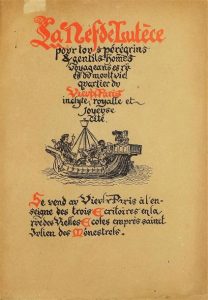 La Nef de Lutèce
pour tous pérégrins
& gentils homes
voyageans es ru
es du mont viel
quartier du
Vieulx Paris
inclyte royalle et
joyeuse
cité
Se vend au Vieulx Paris à l'en-
seigne des trois Escritoires en la
rue des Vielles Escoles emprès sainct
Julien des Ménestrels.